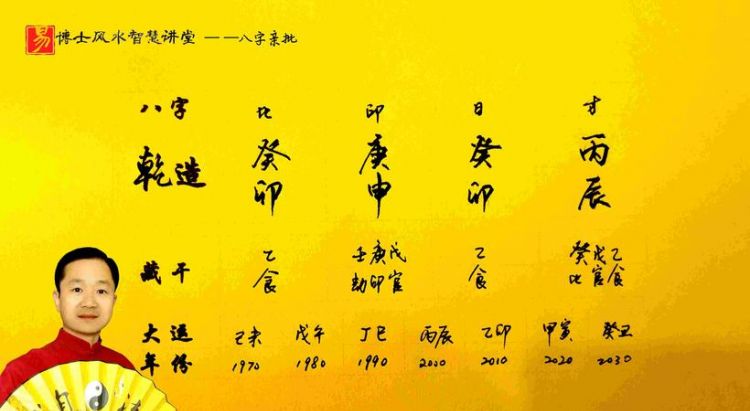 易 博士风水智慧讲堂 ——八字亲批
八字 比 印 日 才
乾造 癸卯 庚申 癸卯 丙辰
藏干 乙食 壬劫 庚印 戊官 乙食 癸比 戊官 乙食
大运 己未 戊午 丁巳 丙辰 乙卯 甲寅 癸丑
年份 1970 1980 1990 2000 2010 2020 2030